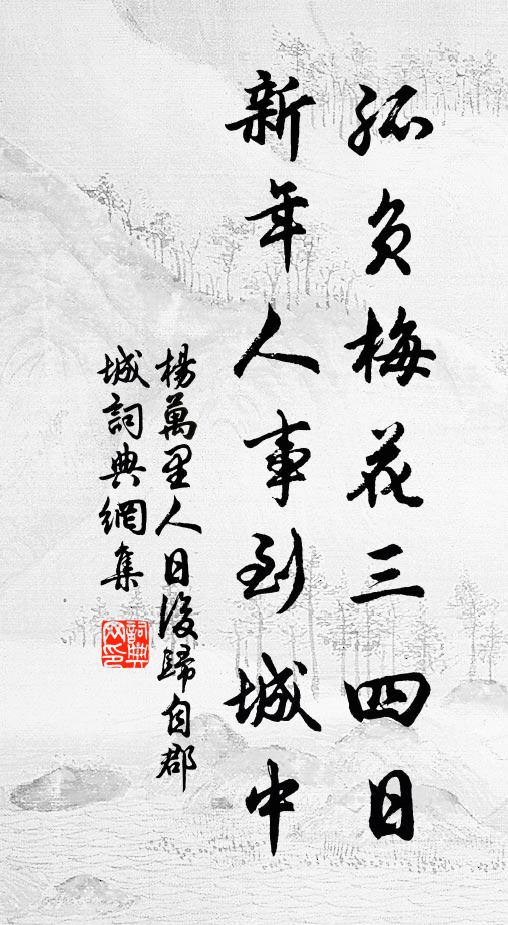 孤負梅花三四日
新年人事到城中
楊萬里人日後歸自郡
城詞典網集
詞典
网印